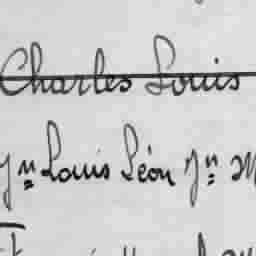 Charles Louis
Jn Louis Léon Jn